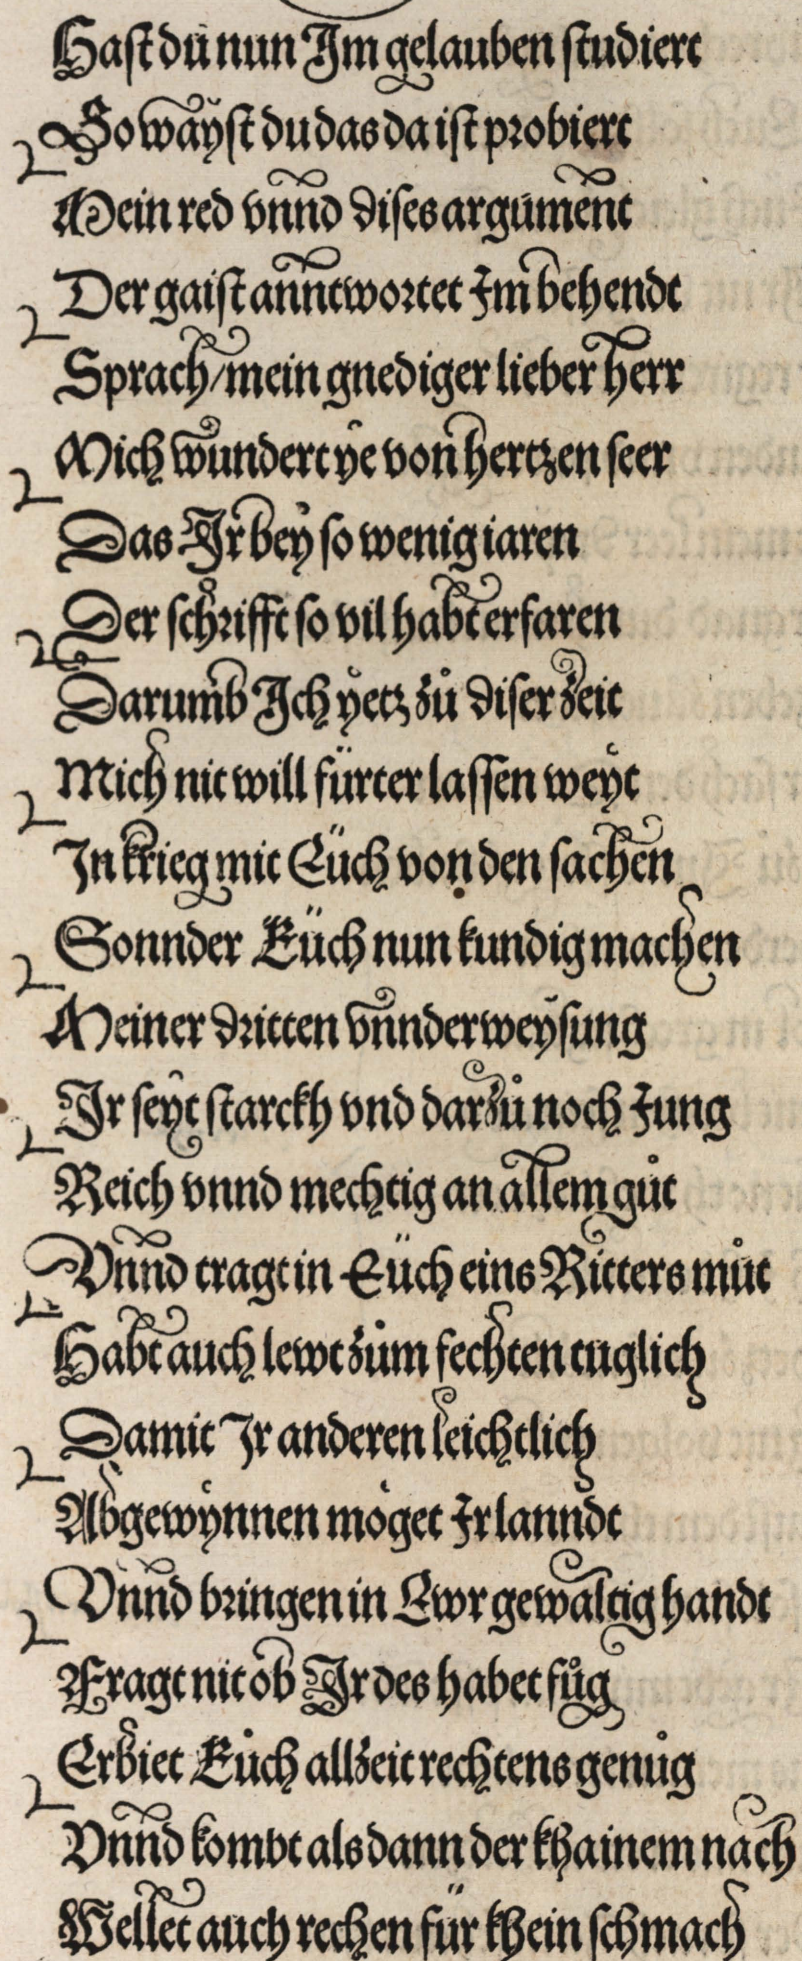 Hast du nun Im gelauben studiert
So wayſt du das da iſt probiert
Mein red vnnd diſes argument
Der gaiſt anntwortet Im behendt
Sprach/mein gnediger lieber herr
Mich wundert ye von hertzen ſeer
Das Ir bey ſo wenig iaren
Der ſchrifft ſo vil habt erfaren
Darumb Ich yetz zů diſer zeit
Mich nit will fürter laſſen weyt
In krieg mit Eüch von den ſachen
Sonnder Eüch nun kundig machen
Meiner dritten vnnderweyſung
Ir ſeyt ſtarckh vnd darzů noch Jung
Reich vnnd mechtig an allem gůt
Vnnd tragt in Eüch eins Ritters můt
Habt auch lewt zům fechten tuglich
Damit Ir anderen leichtlich
Abgewynnen möget Ir lanndt
Vnnd bringen in Ewr gewaltig handt
Fragt nit ob Ir des habet fůg
Erbiet Eůch allzeit rechtens genůg
Vnnd kombt als dann der khainem nach
Wellet auch rechen für khein ſchmach